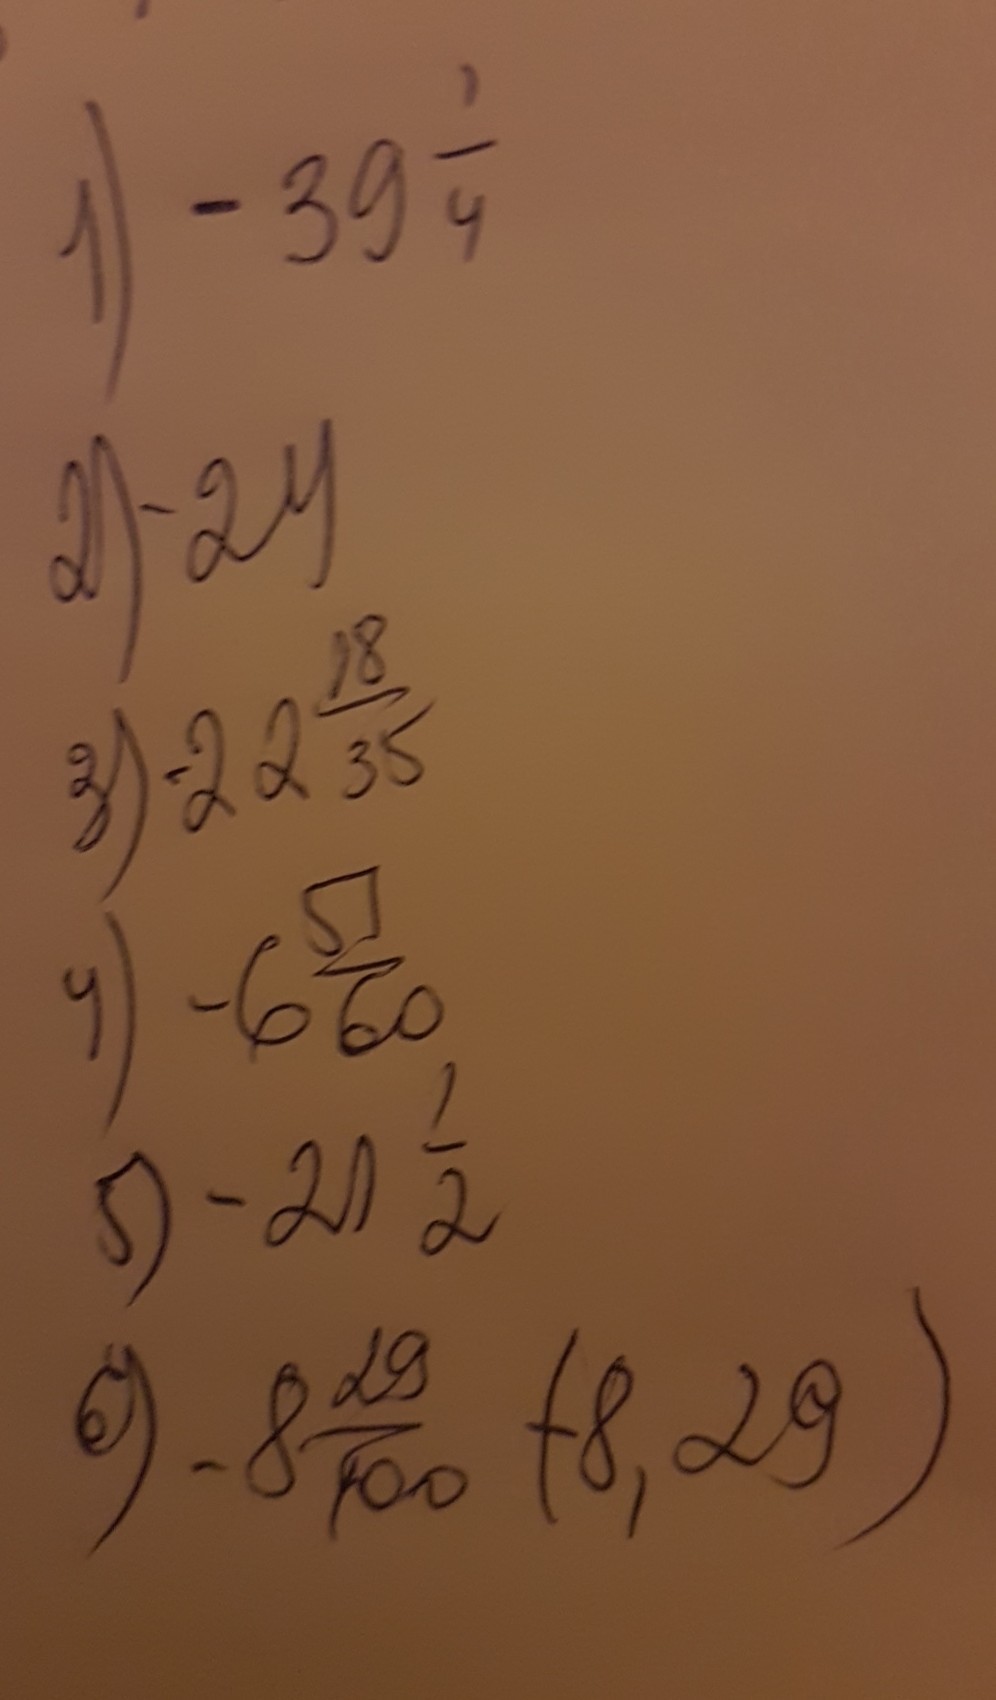 1) - 39 1/4
2) - 24
3) - 22 18/35
4) - 6 51/60
5) - 21 1/2
6) - 8 29/100 (-8,29)